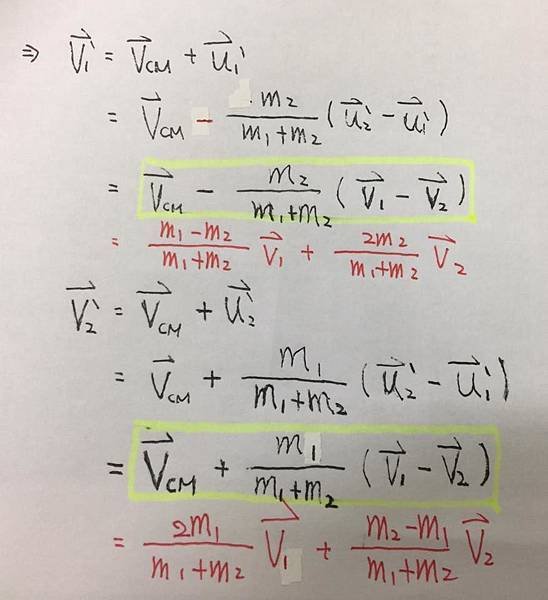 ⇒ \vec{V_1'} = \vec{V}_{CM} + \vec{u_1'}
= \vec{V}_{CM} - \frac{m_2}{m_1+m_2} (\vec{u_2'} - \vec{u_1'})
= \vec{V}_{CM} - \frac{m_2}{m_1+m_2} (\vec{V_1} - \vec{V_2})
= \frac{m_1-m_2}{m_1+m_2} \vec{V_1} + \frac{2m_2}{m_1+m_2} \vec{V_2}
\vec{V_2'} = \vec{V}_{CM} + \vec{u_2'}
= \vec{V}_{CM} + \frac{m_1}{m_1+m_2} (\vec{u_2'} - \vec{u_1'})
= \vec{V}_{CM} + \frac{m_1}{m_1+m_2} (\vec{V_1} - \vec{V_2})
= \frac{2m_1}{m_1+m_2} \vec{V_1} + \frac{m_2-m_1}{m_1+m_2} \vec{V_2}